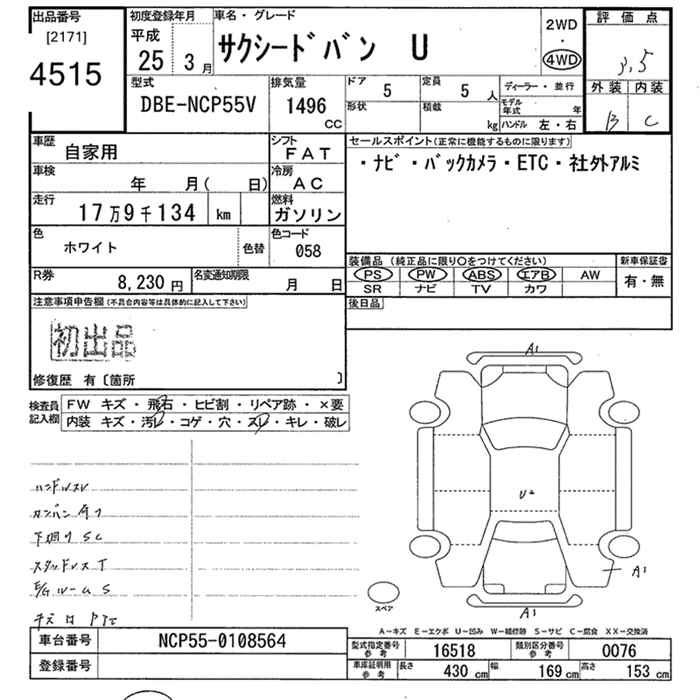 出品番号
[2171]
4515
初度登録年月
平成
25 3月
車名・グレード
サクシードバン U
2WD
・
4WD
評価点
3.5
外装 内装
B C
型式
DBE-NCP55V
排気量
1496
CC
ドア 5
定員 5 人
形状
積載 kg
ディーラー・並行
モデル年式 年
ハンドル 左・右
車歴 自家用
シフト FAT
セールスポイント(正常に機能するものに限ります)
・ナビ・バックカメラ・ETC・社外アルミ
車検 年 月( 日)
冷房 AC
走行 17万9千134 km
燃料 ガソリン
色 ホワイト 色替
色コード 058
装備品 (純正品に限り○をつけてください)
新車保証書
PS PW ABS エアB AW
有・無
SR ナビ TV カワ
R券 8,230円
名変通知期限 月 日
後日品
注意事項申告欄(不具合内容等は具体的に記入して下さい)
初出品
修復歴 有〔箇所 〕
検査員記入欄
FW キズ・飛石・ヒビ割・リペア跡・×要
内装 キズ・汚レ・コゲ・穴・スレ・キレ・破レ
A1
U2
A1
A1
ハンドルスレ
下廻りSC
スペア
A-キズ E-エクボ U-凹み W-補修跡 S-サビ C-腐食 XX-交換済
車台番号 NCP55-0108564
登録番号
型式指定番号 参考 16518
類別区分番号 参考 0076
車庫証明用 参考 長さ 430cm 幅 169cm 高さ 153cm